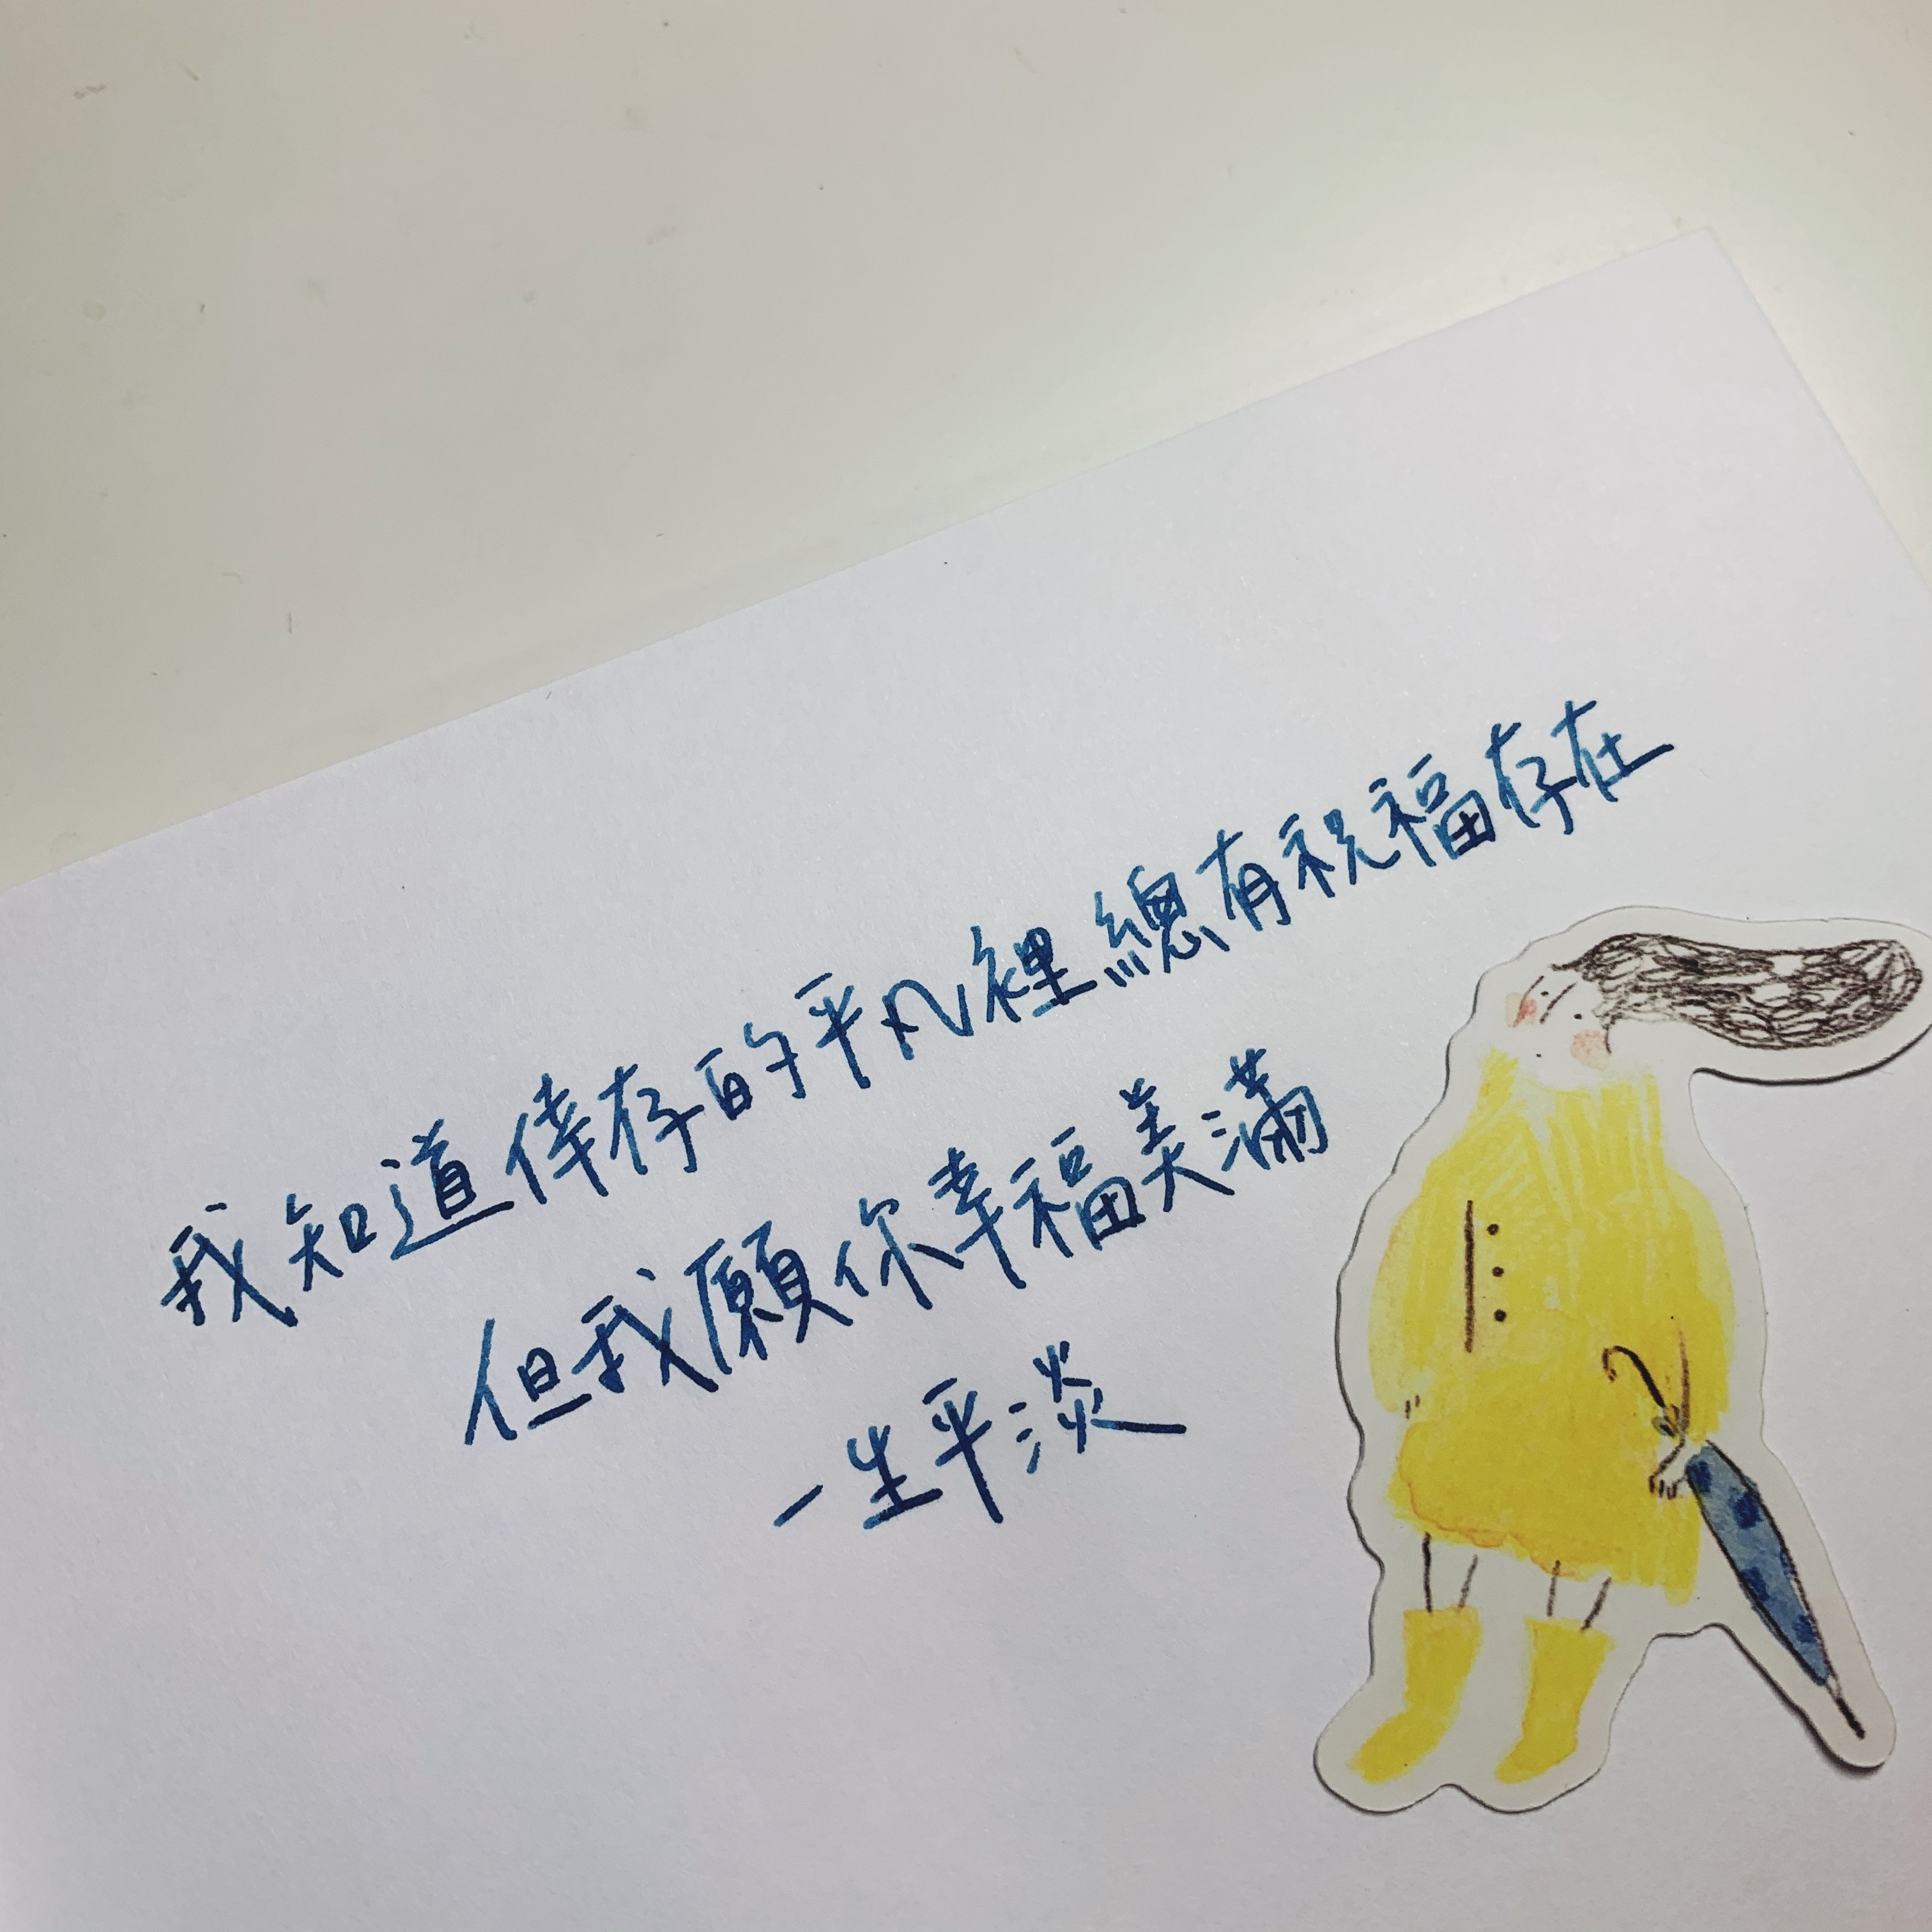 我知道倖存的平凡裡總有祝福存在
但我願你幸福美滿
一生平淡